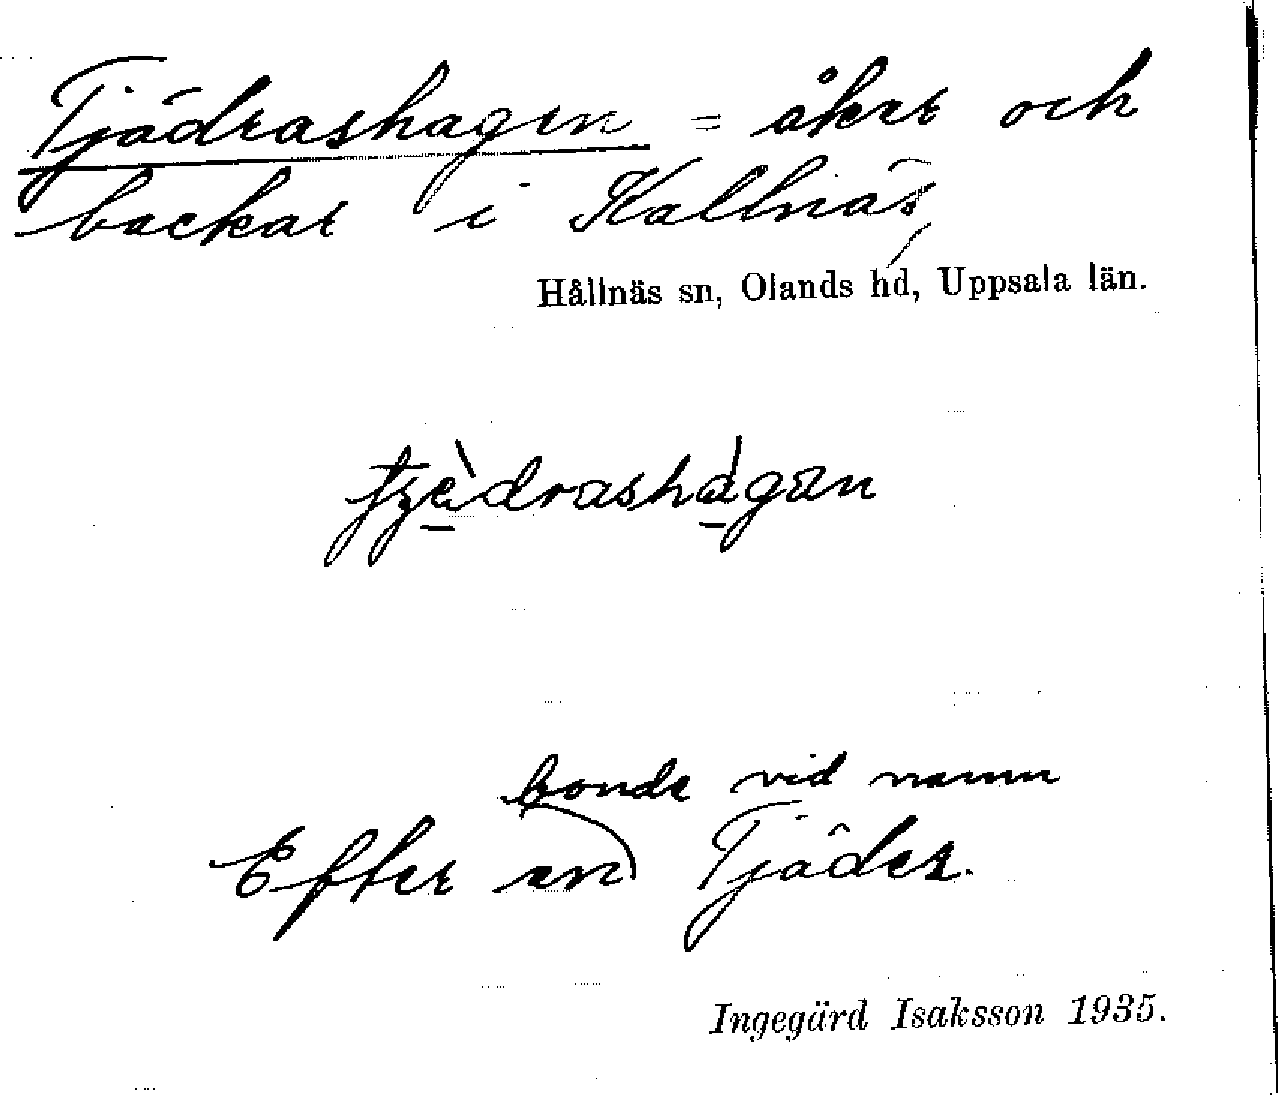 Tjädrashagen = åker och
backar i Kallnäs,
Hållnäs sn, Olands hd, Uppsala län.
bonde vid namn
Efter en Tjäder.
Ingegärd Isaksson 1935.